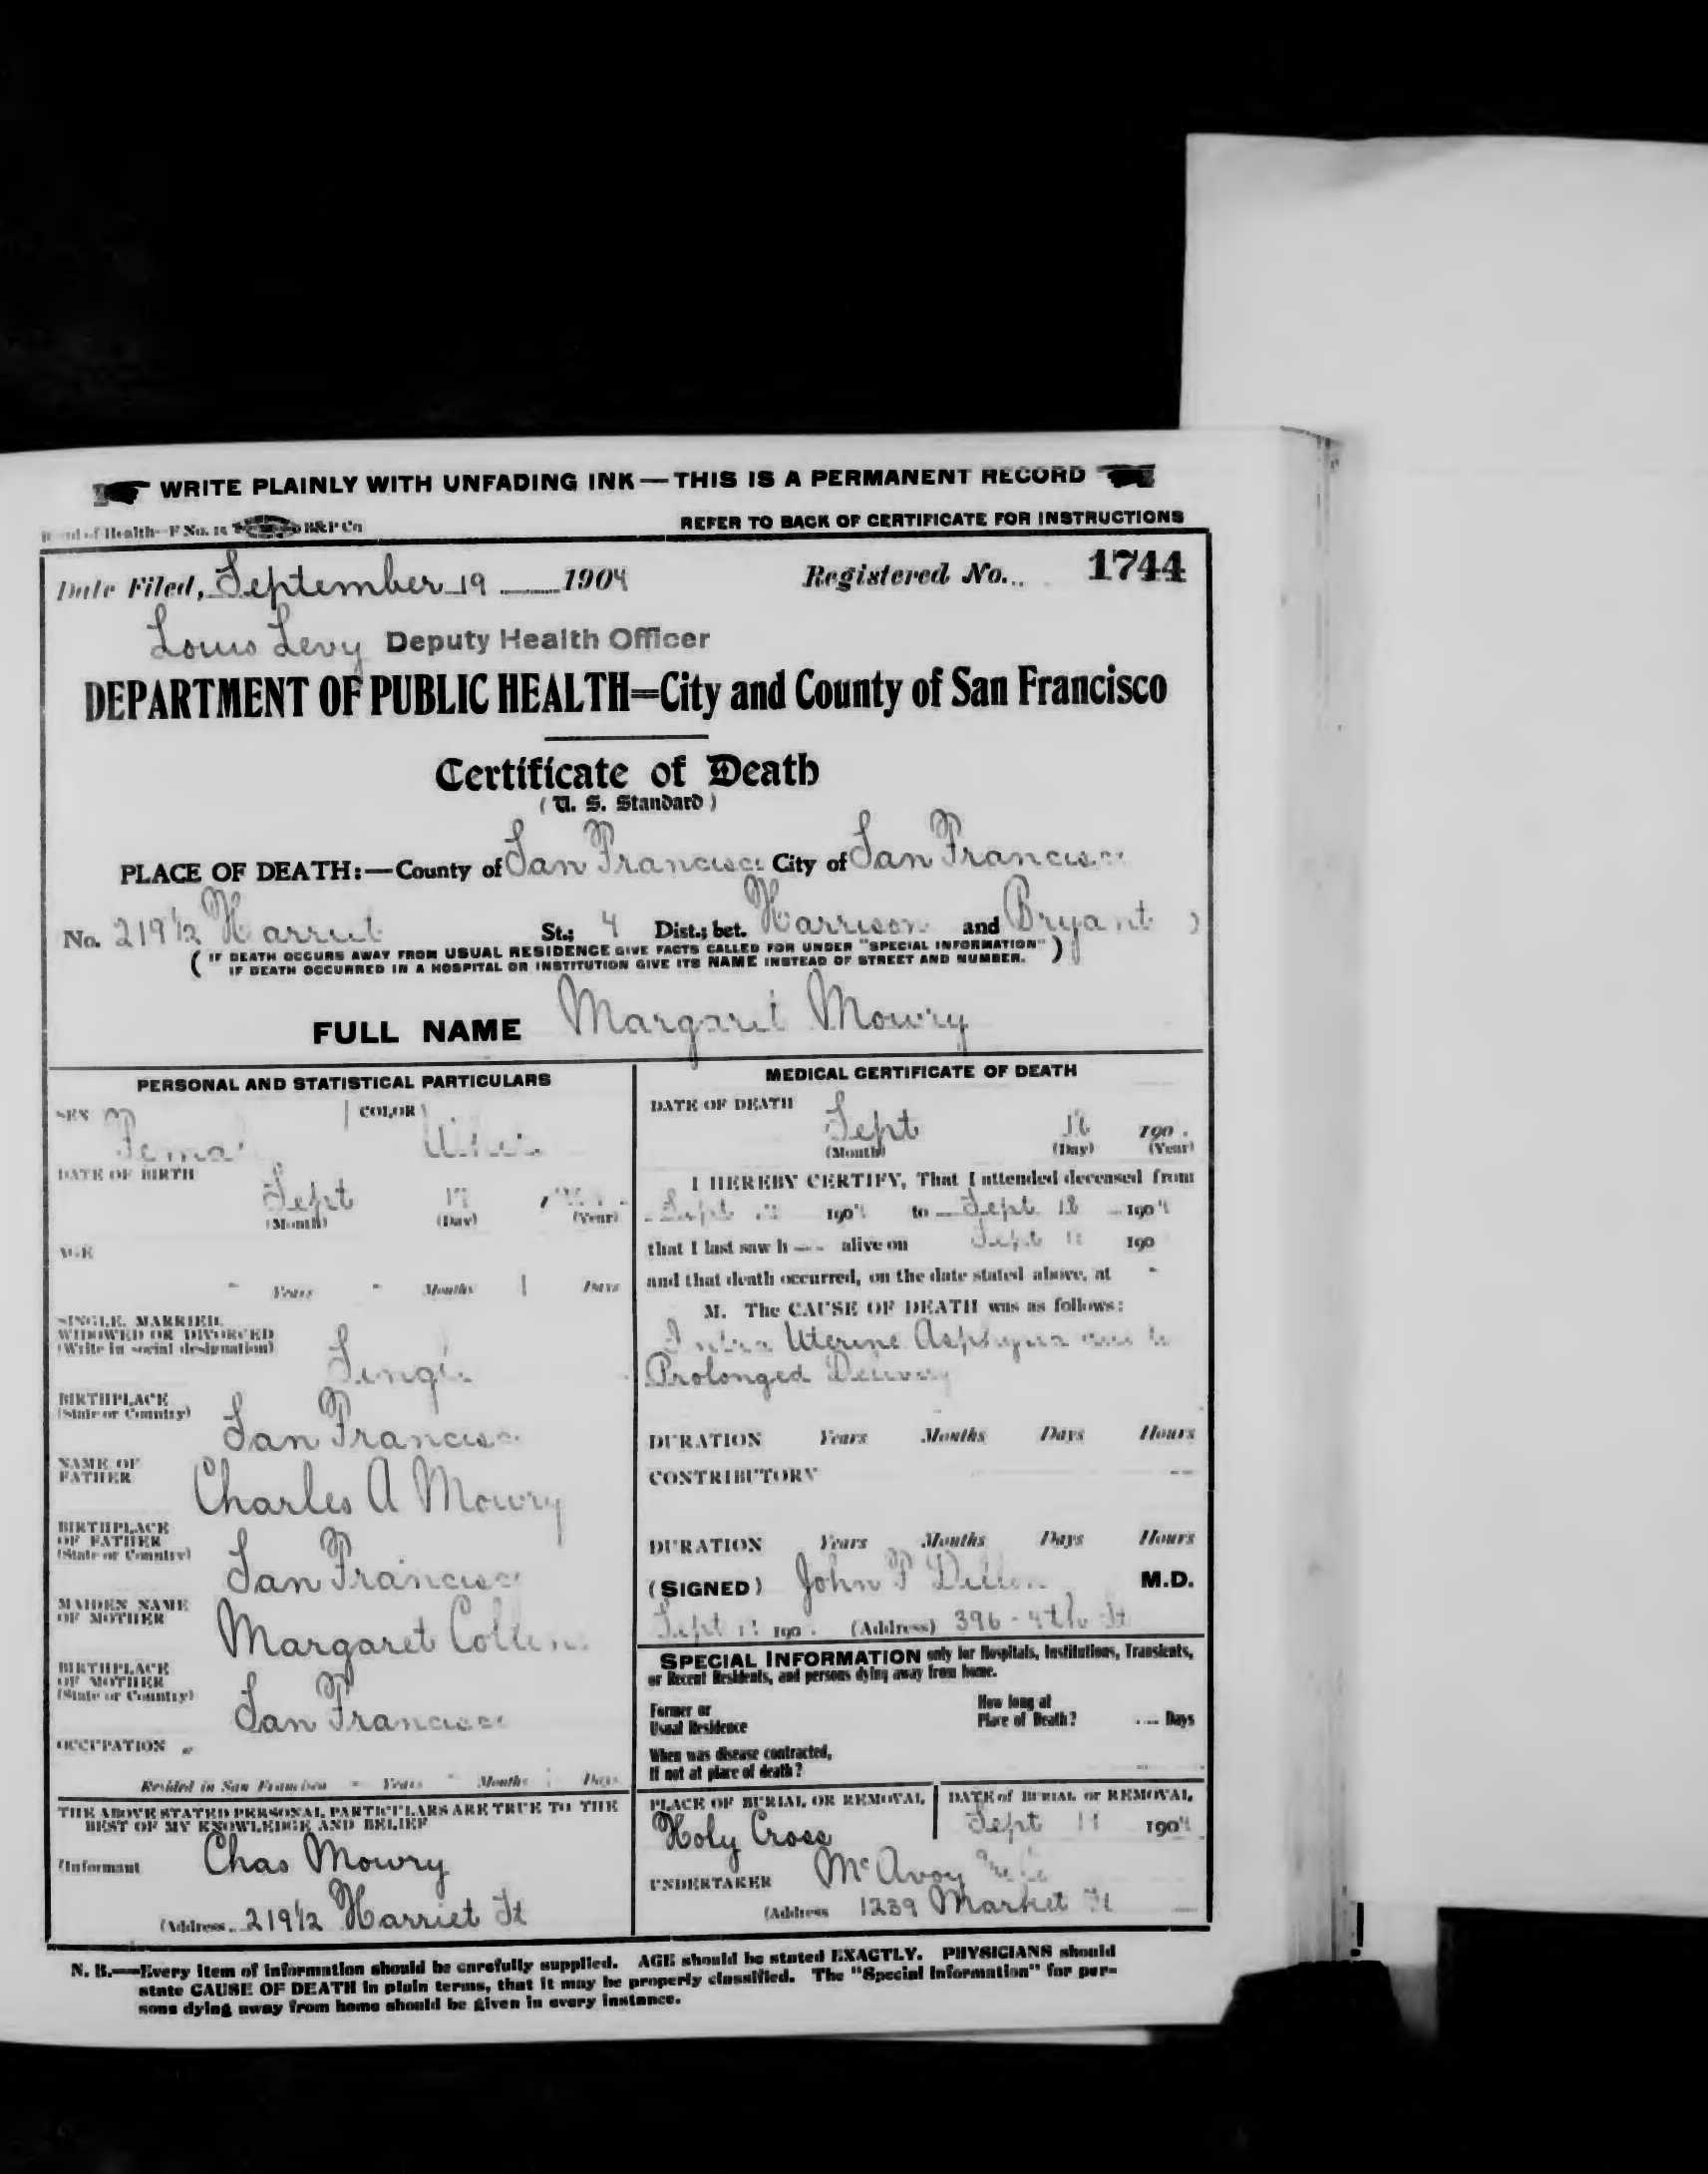 WRITE PLAINLY WITH UNFADING INK — THIS IS A PERMANENT RECORD
of Health—F No. 15 B&P Co
REFER TO BACK OF CERTIFICATE FOR INSTRUCTIONS
Date Filed, September 19 1904 Registered No. 1744
Louis Levy Deputy Health Officer
DEPARTMENT OF PUBLIC HEALTH=City and County of San Francisco
Certificate of Death
(U. S. Standard)
PLACE OF DEATH:—County of San Francisco City of San Francisco
No. 219½ Harriet St.; 4 Dist.; bet. Harrison and Bryant )
( IF DEATH OCCURS AWAY FROM USUAL RESIDENCE GIVE FACTS CALLED FOR UNDER "SPECIAL INFORMATION"
IF DEATH OCCURRED IN A HOSPITAL OR INSTITUTION GIVE ITS NAME INSTEAD OF STREET AND NUMBER. )
FULL NAME Margaret Mowry
PERSONAL AND STATISTICAL PARTICULARS
SEX COLOR
Female White
DATE OF BIRTH
Sept 17
(Month) (Day) (Year)
AGE
Years Months 1 Days
SINGLE, MARRIED,
WIDOWED OR DIVORCED
(Write in social designation)
Single
BIRTHPLACE
(State or Country)
San Francisco
NAME OF
FATHER
Charles A Mowry
BIRTHPLACE
OF FATHER
(State or Country)
San Francisco
MAIDEN NAME
OF MOTHER
Margaret
BIRTHPLACE
OF MOTHER
(State or Country)
San Francisco
OCCUPATION
Resided in San Francisco Years Months Days
THE ABOVE STATED PERSONAL PARTICULARS ARE TRUE TO THE
BEST OF MY KNOWLEDGE AND BELIEF
(Informant Chas Mowry
(Address 219½ Harriet St
MEDICAL CERTIFICATE OF DEATH
DATE OF DEATH
Sept 18 190
(Month) (Day) (Year)
I HEREBY CERTIFY, That I attended deceased from
Sept 1904 to Sept 18 1904
that I last saw h alive on Sept 190
and that death occurred, on the date stated above, at
M. The CAUSE OF DEATH was as follows:
Intra Uterine Asphyxia due to
Prolonged Delivery
DURATION Years Months Days Hours
CONTRIBUTORY
DURATION Years Months Days Hours
(SIGNED) John P Dillon M.D.
Sept 190 (Address) 396 - 4th St
SPECIAL INFORMATION only for Hospitals, Institutions, Transients,
or Recent Residents, and persons dying away from home.
Former or
Usual Residence
How long at
Place of Death? Days
When was disease contracted,
If not at place of death?
PLACE OF BURIAL OR REMOVAL DATE of BURIAL or REMOVAL
Holy Cross Sept 1904
UNDERTAKER McAvoy
(Address 1239 Market St
N. B.—Every item of information should be carefully supplied. AGE should be stated EXACTLY. PHYSICIANS should
state CAUSE OF DEATH in plain terms, that it may be properly classified. The "Special Information" for per-
sons dying away from home should be given in every instance.